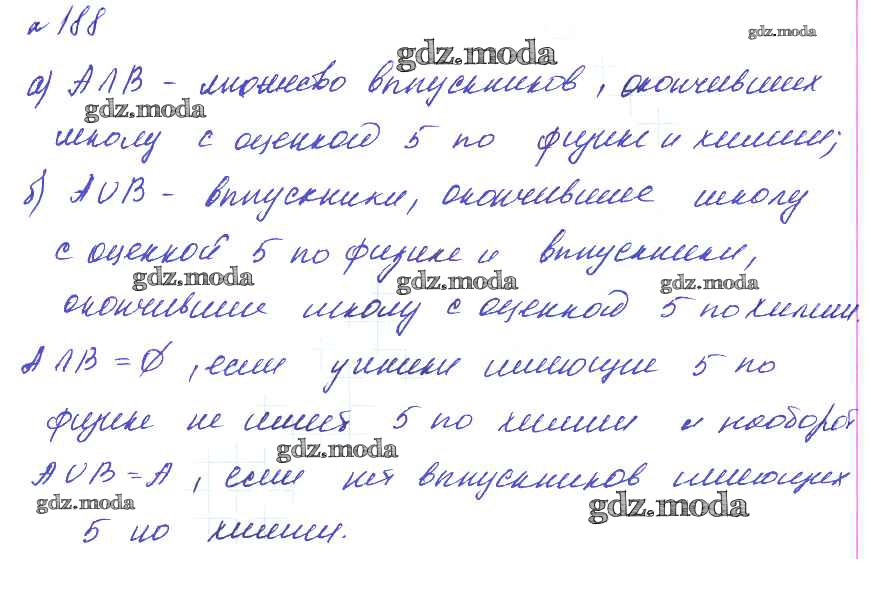 № 188
gdz.moda
gdz.moda
а) A∩B - множество выпускников, окончивших
gdz.moda
школу с оценкой 5 по физике и химии;
б) A∪B - выпускники, окончившие школу
с оценкой 5 по физике и выпускники,
gdz.moda gdz.moda gdz.moda
окончившие школу с оценкой 5 по химии.
A∩B = ∅, если ученики имеющие 5 по
физике не имеет 5 по химии и наоборот
gdz.moda
A∪B = A, если нет выпускников имеющих
gdz.moda gdz.moda
5 по химии.